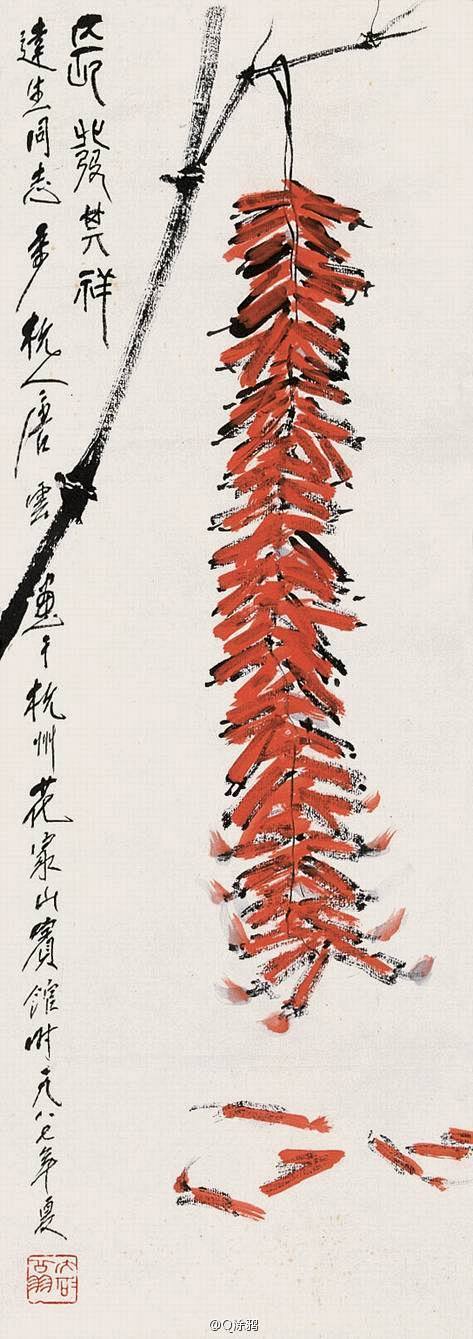 長發其祥
達生同志 杭人唐雲畫于杭州花家山賓館時一九八七年夏
@Q涂鸦